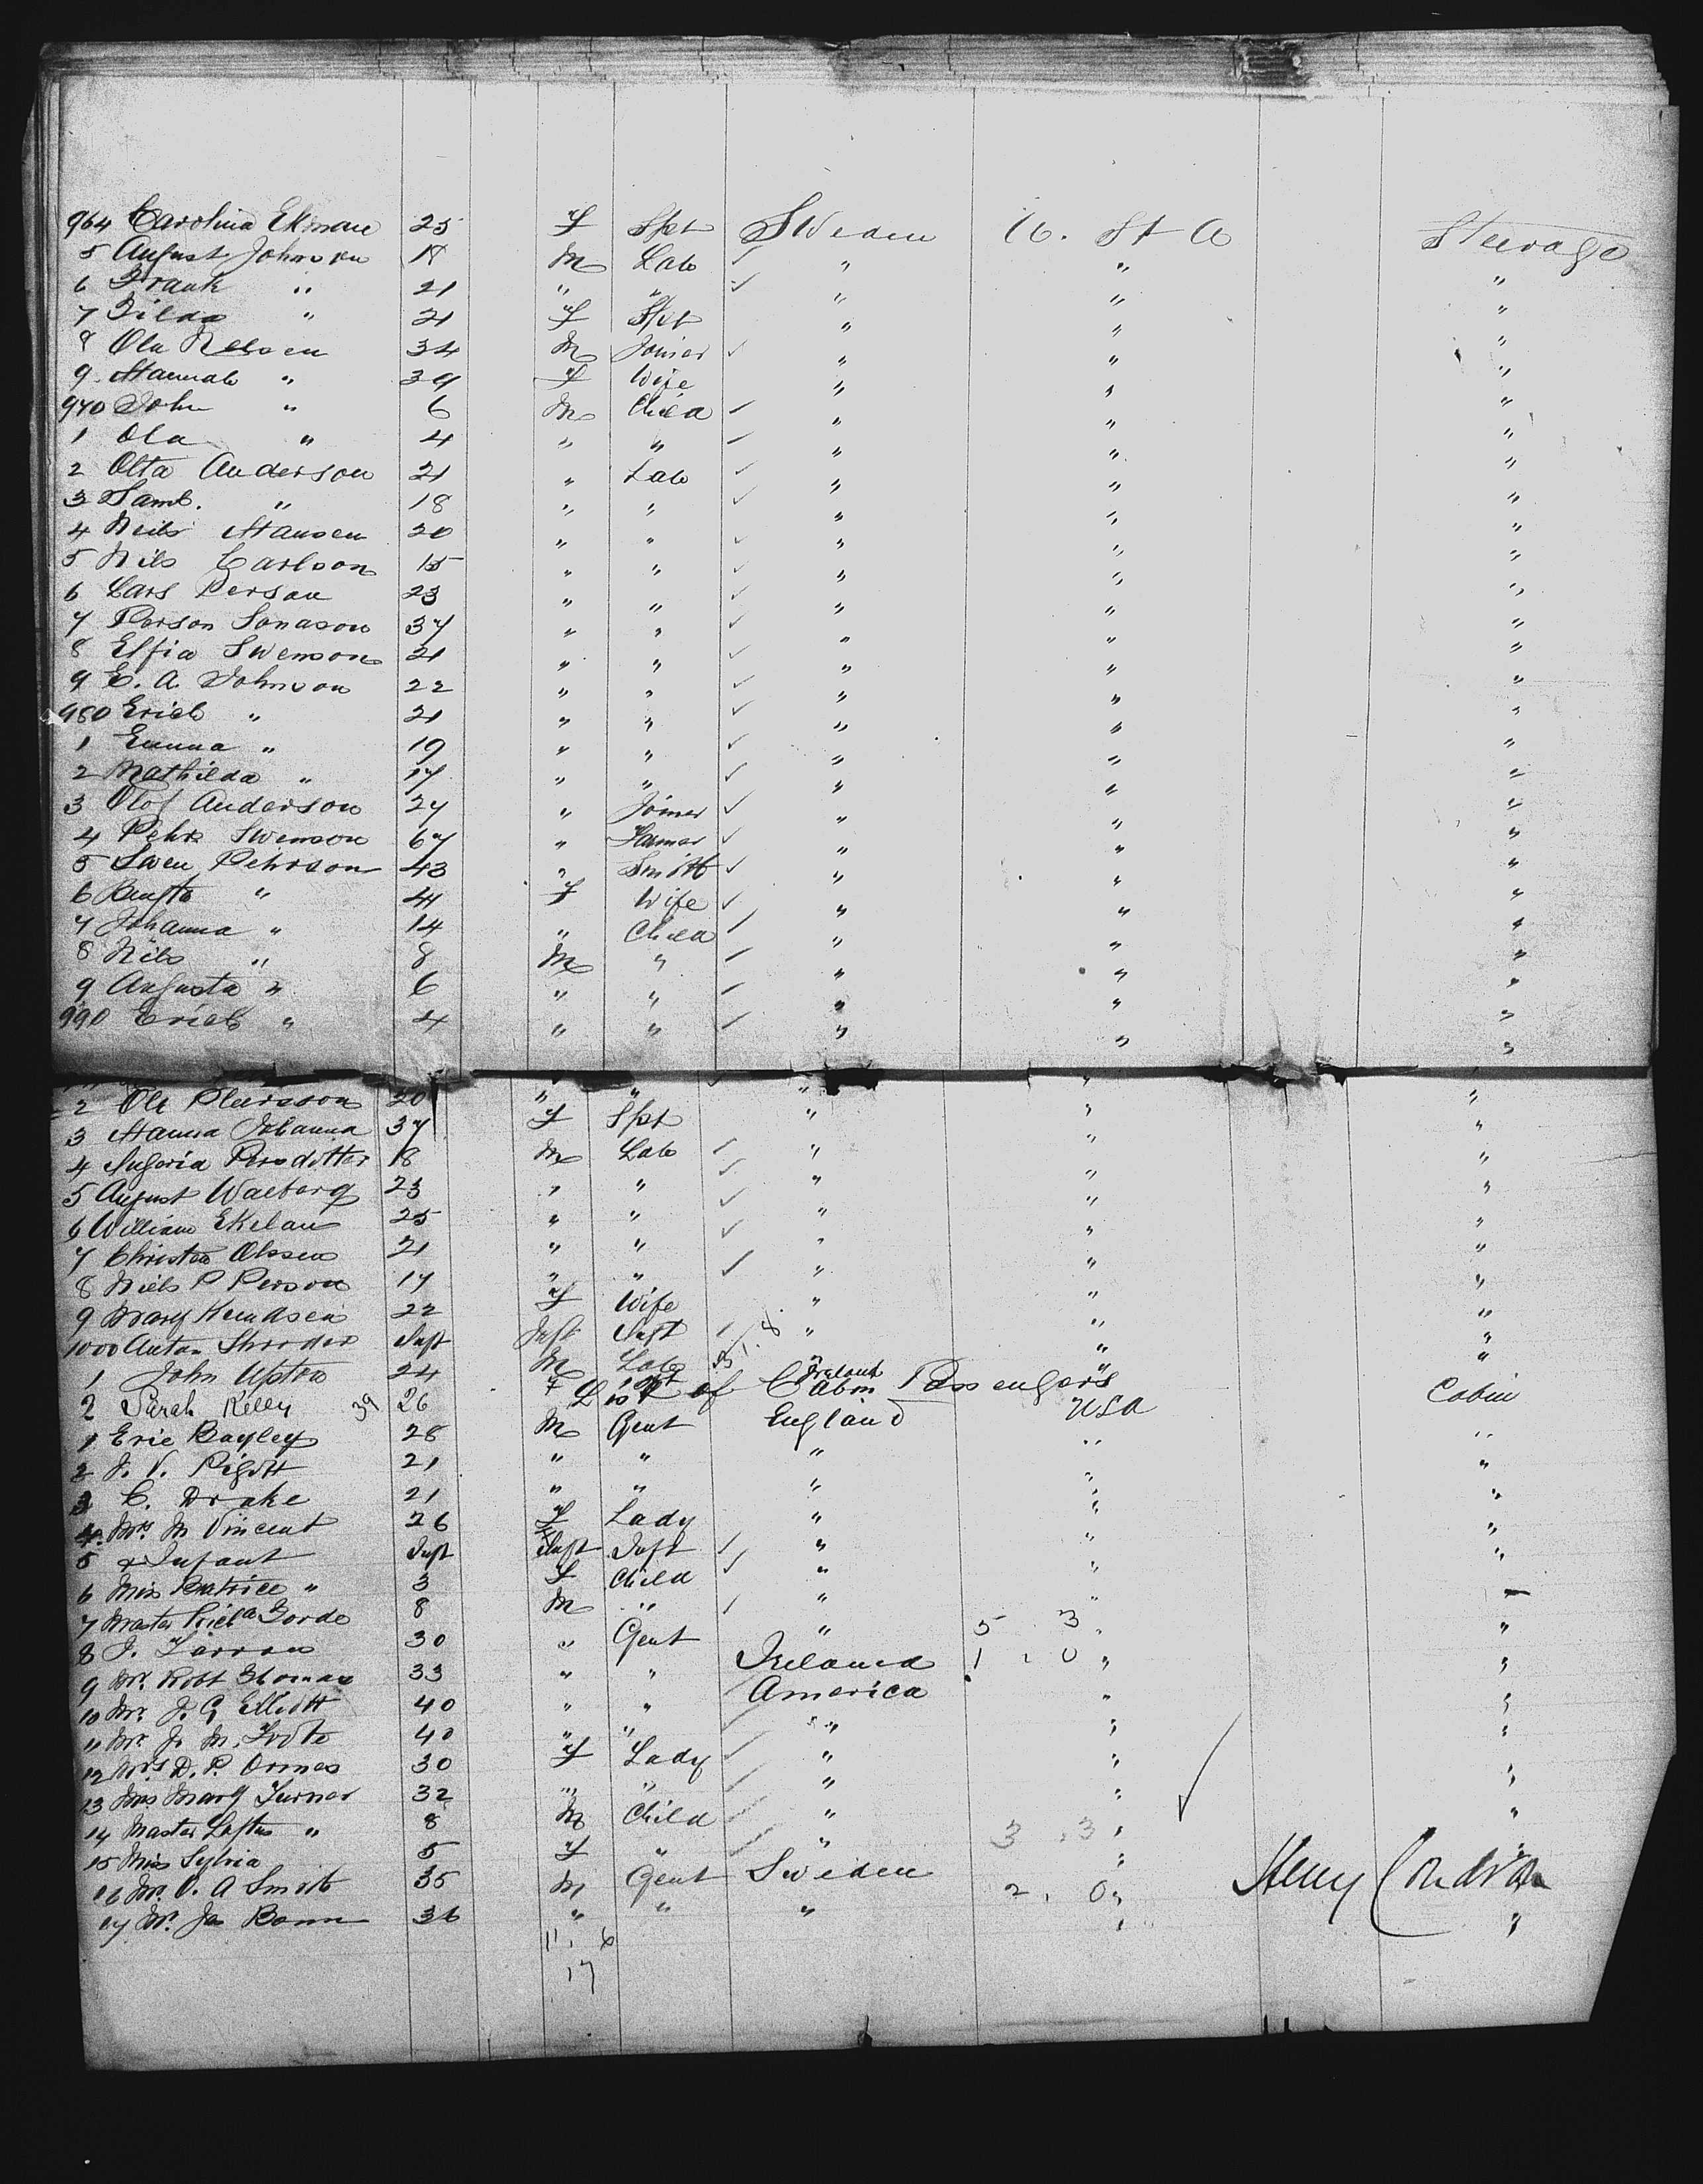 964 Carolina Ekman 25 F Spst Sweden U. St A Steerage
5 August Johnson 18 M Lab ✓ " " "
6 Frank " 21 " " ✓ " " "
7 Hilda " 21 F Spst " " "
8 Ola Nelson 34 M Joiner ✓ " " "
9 Hannah " 39 F Wife " " "
970 John " 6 M Child ✓ " " "
1 Ola " 4 " " ✓ " " "
2 Olta Anderson 21 " Lab ✓ " " "
3 Saml. " 18 " " ✓ " " "
4 Neils Hansen 20 " " ✓ " " "
5 Nils Carlson 15 " " ✓ " " "
6 Lars Person 23 " " ✓ " " "
7 Person Sonason 37 " " ✓ " " "
8 Elfia Swenson 21 " " ✓ " " "
9 E. A. Johnson 22 " " ✓ " " "
980 Erick " 21 " " ✓ " " "
1 Emma " 19 " " ✓ " " "
2 Mathilda " 17 " " ✓ " " "
3 Olof Anderson 27 " Joiner ✓ " " "
4 Pehr Swenson 67 " Farmer ✓ " " "
5 Swen Pehrson 43 " Smith ✓ " " "
6 Bengta " 41 F Wife ✓ " " "
7 Johanna " 14 " Child ✓ " " "
8 Nils " 8 M " ✓ " " "
9 Augusta " 6 " " ✓ " " "
990 Erick " 4 " " ✓ " " "
2 Ole Pearsson 20 " " " " "
3 Hanna Johanna 37 F Spst " " "
4 Persdotter 18 M Lab ✓ " " "
5 August Walberg 23 " " ✓ " " "
6 William Ekelau 25 " " ✓ " " "
7 Christen Olssen 21 " " ✓ " " "
8 Niels P Person 17 " " ✓ " " "
9 Mary Kundsen 22 F Wife " " "
1000 Anton Shroder Inft Inft Inft ✓ " " "
1 John Upton 24 M Lab Ireland " "
2 Sarah Kelly 39 26 F Spt
List of Cabin Passengers
1 Eric Bayley 28 M Gent England USA Cabin
2 J. V. Pigott 21 " " " " "
3 C. Drake 21 " " " " "
4 Mrs. M Vincent 26 F Lady " " "
5 & Infant Inft Inft Inft ✓ " " "
6 Miss Beatrice " 3 F Child ✓ " " "
7 Master Richd Forde 8 M " ✓ " " "
8 J. Farran 30 " Gent " 5 3 " "
9 Mr. Robt Thomas 33 " " Ireland 1 . 0 " "
10 Mr. J. G Elliott 40 " " America " "
11 Mr. J. M. Foote 40 " " " " "
12 Mrs. D. P. Ormes 30 F Lady ✓ " " "
13 Mrs Mary Turner 32 " " ✓ " " "
14 Master Loftus " 8 M Child ✓ " " "
15 Miss Sylvia 5 F " ✓ " 3 . 3 " "
16 Mr. O. A Smith 35 M Gent Sweden " "
17 Mr. Jas Bonn 36 " " " 2 . 0 " "
Henry
11 . 6
17